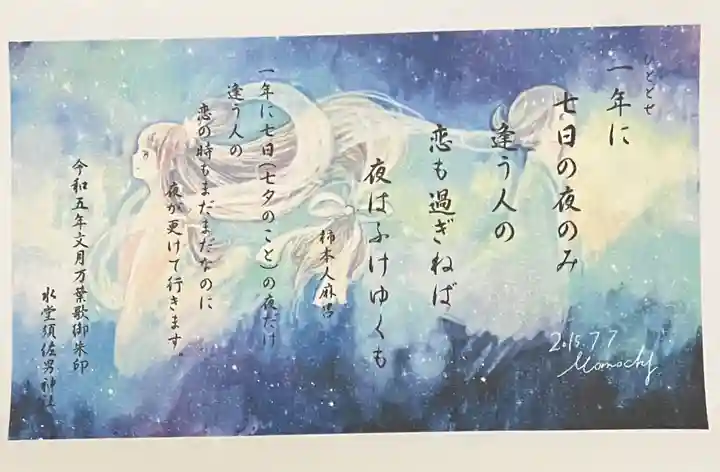 ひととせ
一年に
七日の夜のみ
逢う人の
恋も過ぎねば
夜はふけゆくも
柿本人麻呂
一年に七日(七夕のこと)の夜だけ
逢う人の
恋の時もまだまだなのに
夜が更けて行きます。
令和五年文月万葉歌御朱印
水堂須佐男神社
2015.7.7
Momochy